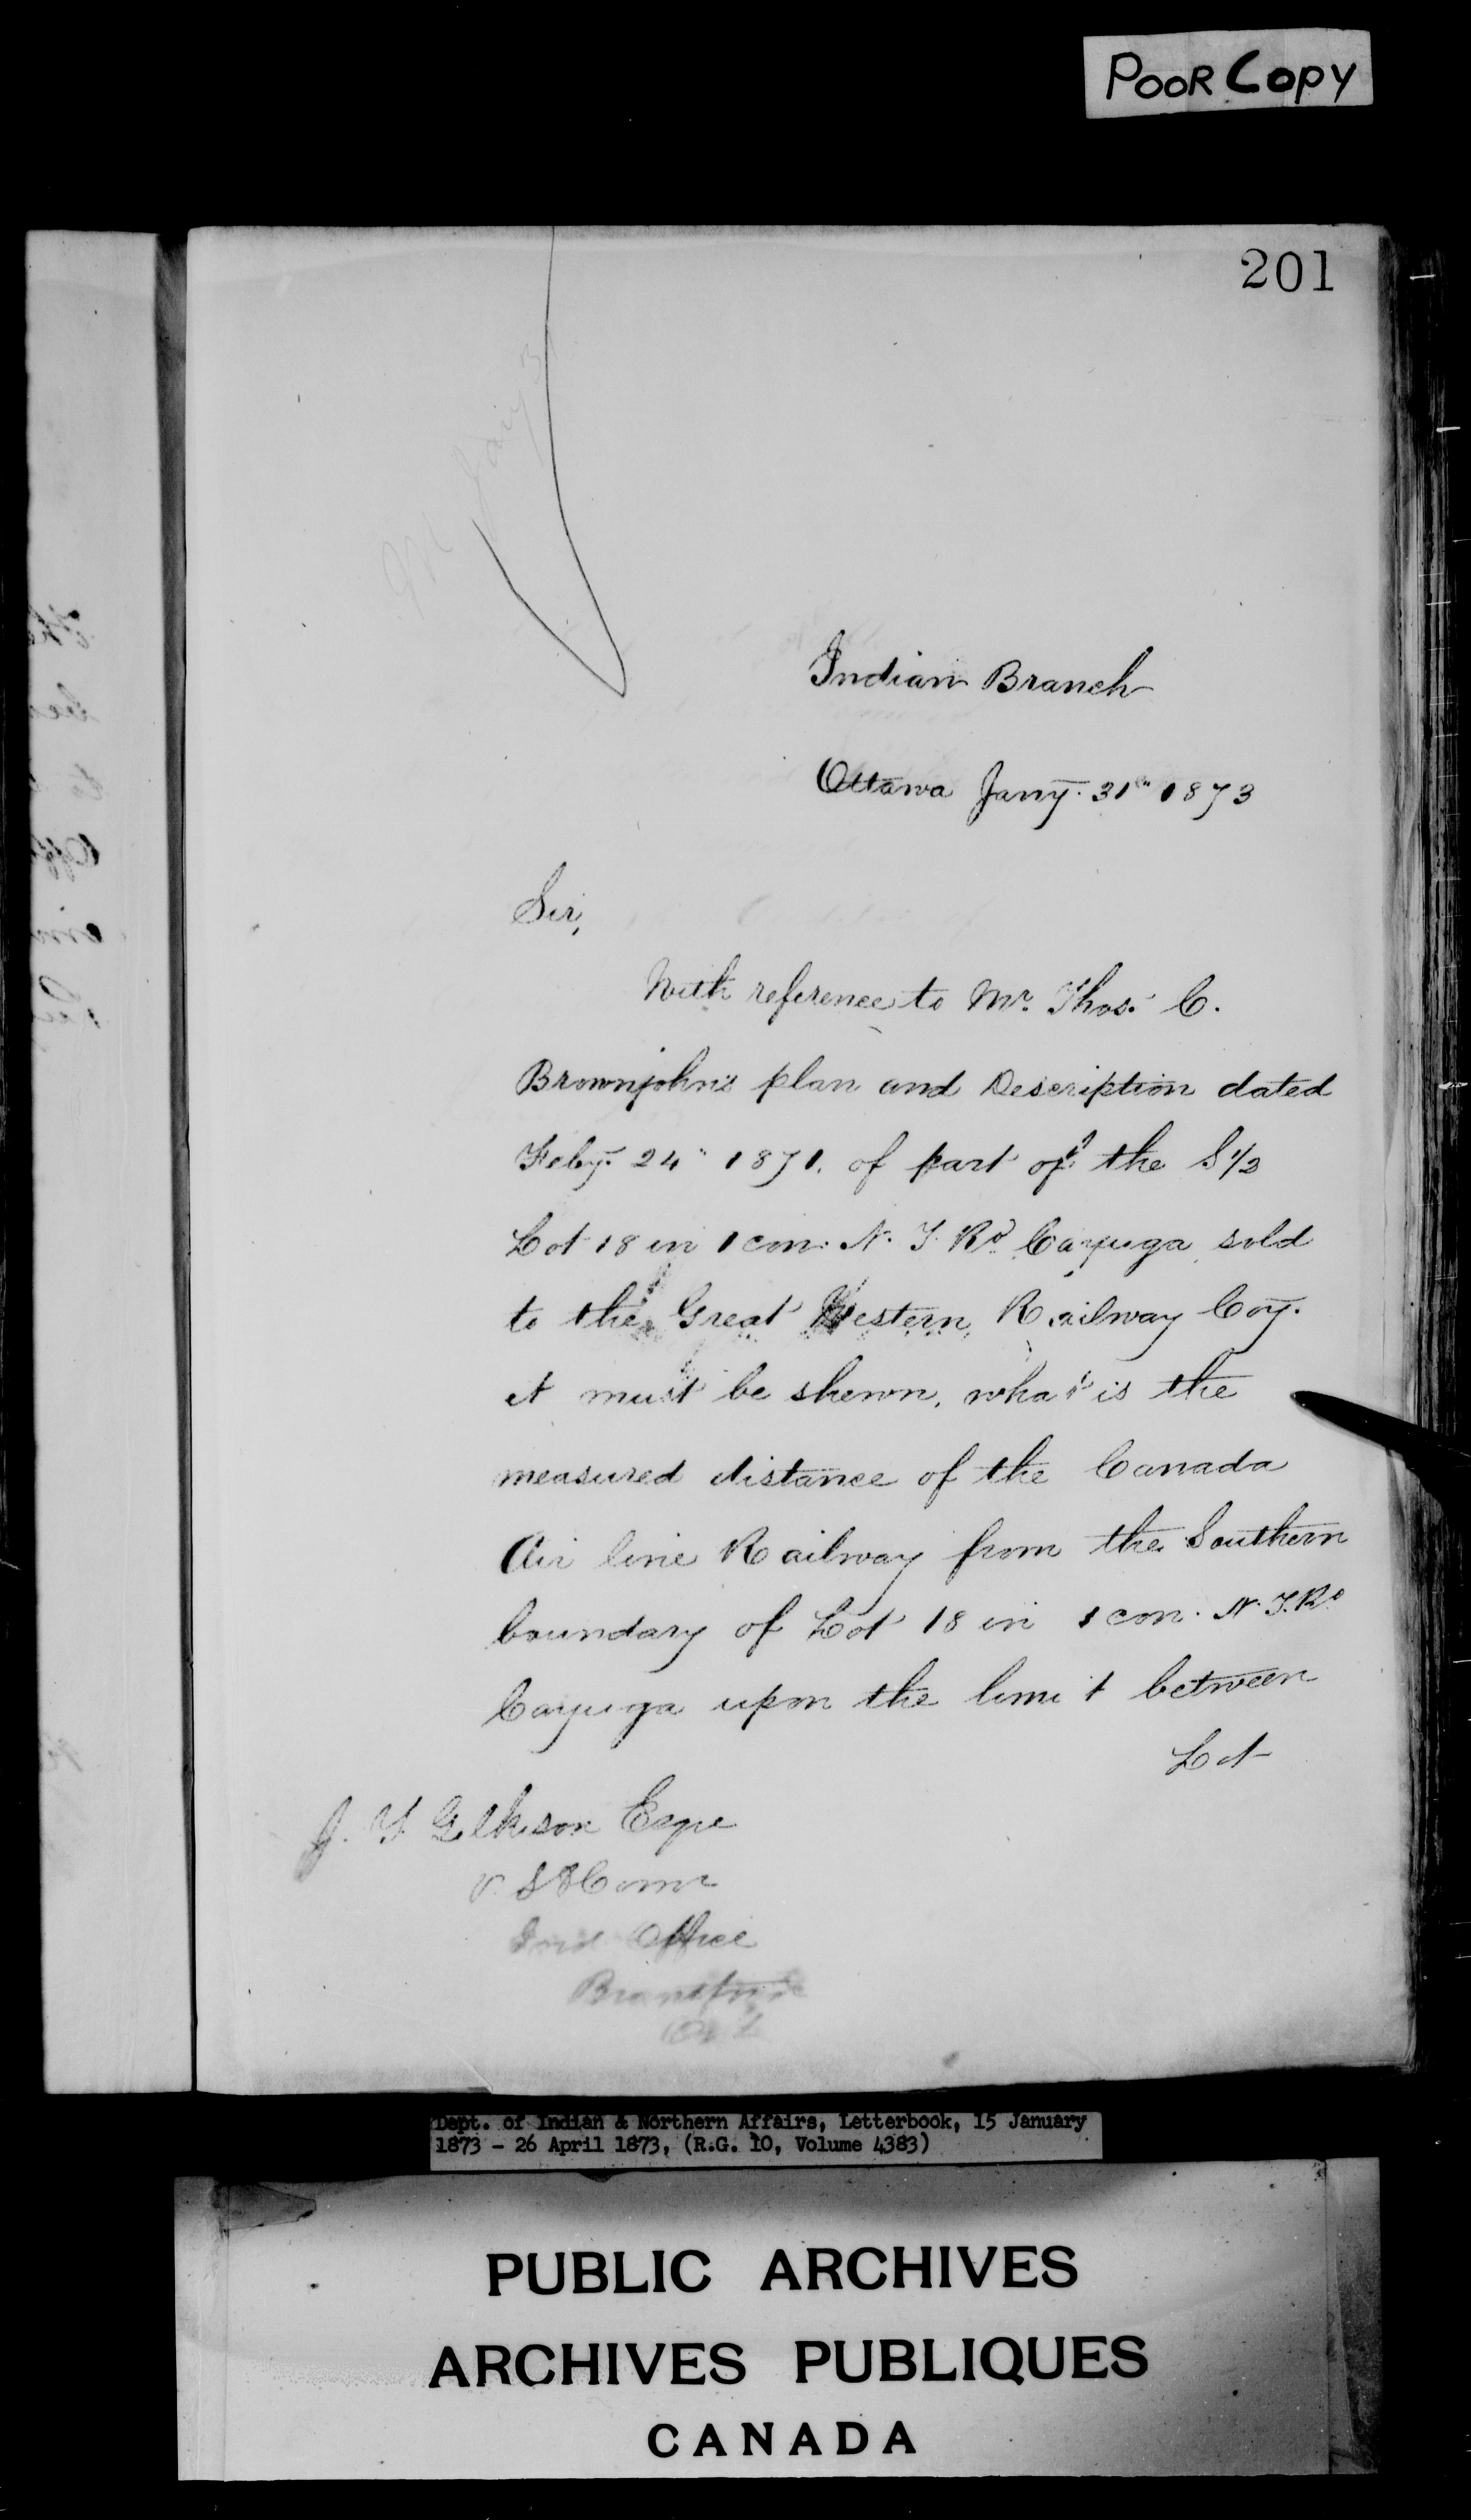 POOR COPY
201
Indian Branch
Ottawa Jany. 31st 1873
Sir,
With reference to Mr. Thos. C.
Brownjohn's plan and Description dated
Feby. 24" 1871. of part of the S 1/2
Lot 18 in 1 con. N. T. Rd Cayuga sold
to the Great Western Railway Coy.
it must be shewn, what is the
measured distance of the Canada
Air line Railway from the Southern
boundary of Lot 18 in 1 con. N. T. Rd
Cayuga upon the limit between
Lot
J. T. Gilkison Esqre
V. S & Comr
Ind Office
Brantford
Ont
Dept. of Indian & Northern Affairs, Letterbook, 15 January
1873 - 26 April 1873, (R.G. 10, Volume 4383)
PUBLIC ARCHIVES
ARCHIVES PUBLIQUES
CANADA